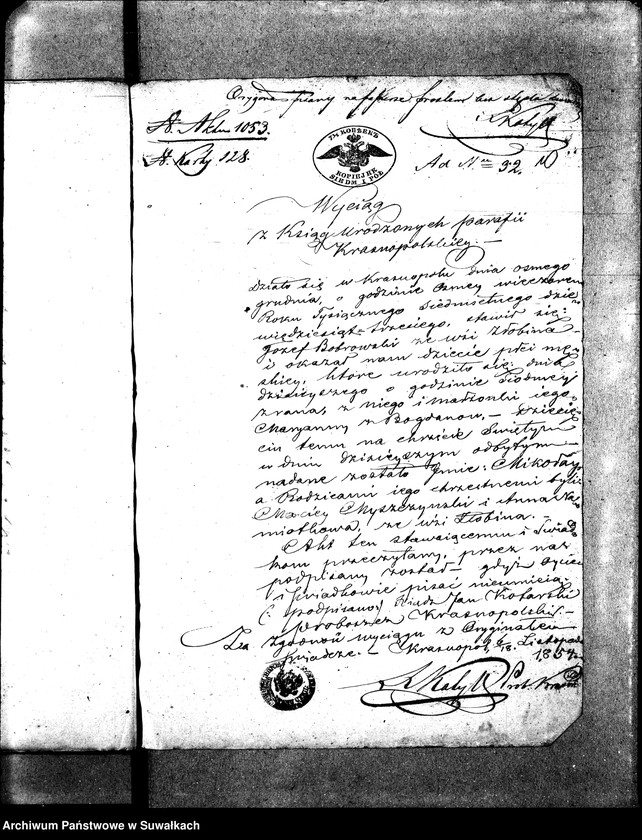 Oryginał pisany na papierze
N. Aktu 1053.
N. Karty 128.
7½ КОПѢЕКЪ
KOPIEJEK
SIEDM I PÓŁ
Ad N. 32.
Wyciąg
z Ksiąg Urodzonych parafii
Krasnopolskiey. –
Działo się w Krasnopolu dnia osmego
grudnia, o godzinie Osmey wieczorem
Roku Tysiącznego Siedmsetnego dzie-
więdziesiąt trzeciego, stawił się:
Józef Bobrowski ze wsi Żłobina
i okazał nam dziecie płci mę-
skiey, które urodziło się: dnia
dzisieyszego o godzinie Siodmey
zrana, z niego i małżonki iego
Maryanny z Bogdanow. – Dziecię-
ciu temu na chrzcie Świętym
w dniu dzisieyszym odbytym
nadane zostało Imie: Mikołay
a Rodzicami iego chrzestnemi byli
Maciey Myszczynski i Anna Na-
miotkowa, ze wsi Żłobina. –
Akt ten stawaiącemu i Świad-
kom przeczytany, przez nas
podpisany został – gdyż oyciec
i Świadkowie pisać nieumieią.
(: podpisano) Xiądz Jan Kotarski
Proboszcz Krasnopolski –
Za zgodność wyciągu z Oryginałem
Świadcze. – Krasnopol, Listopada
1854.